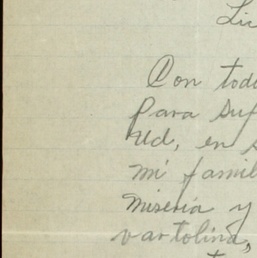 Lic
Con tod
para sup
Ud, en s
mi famil
miseria y
vartolina,